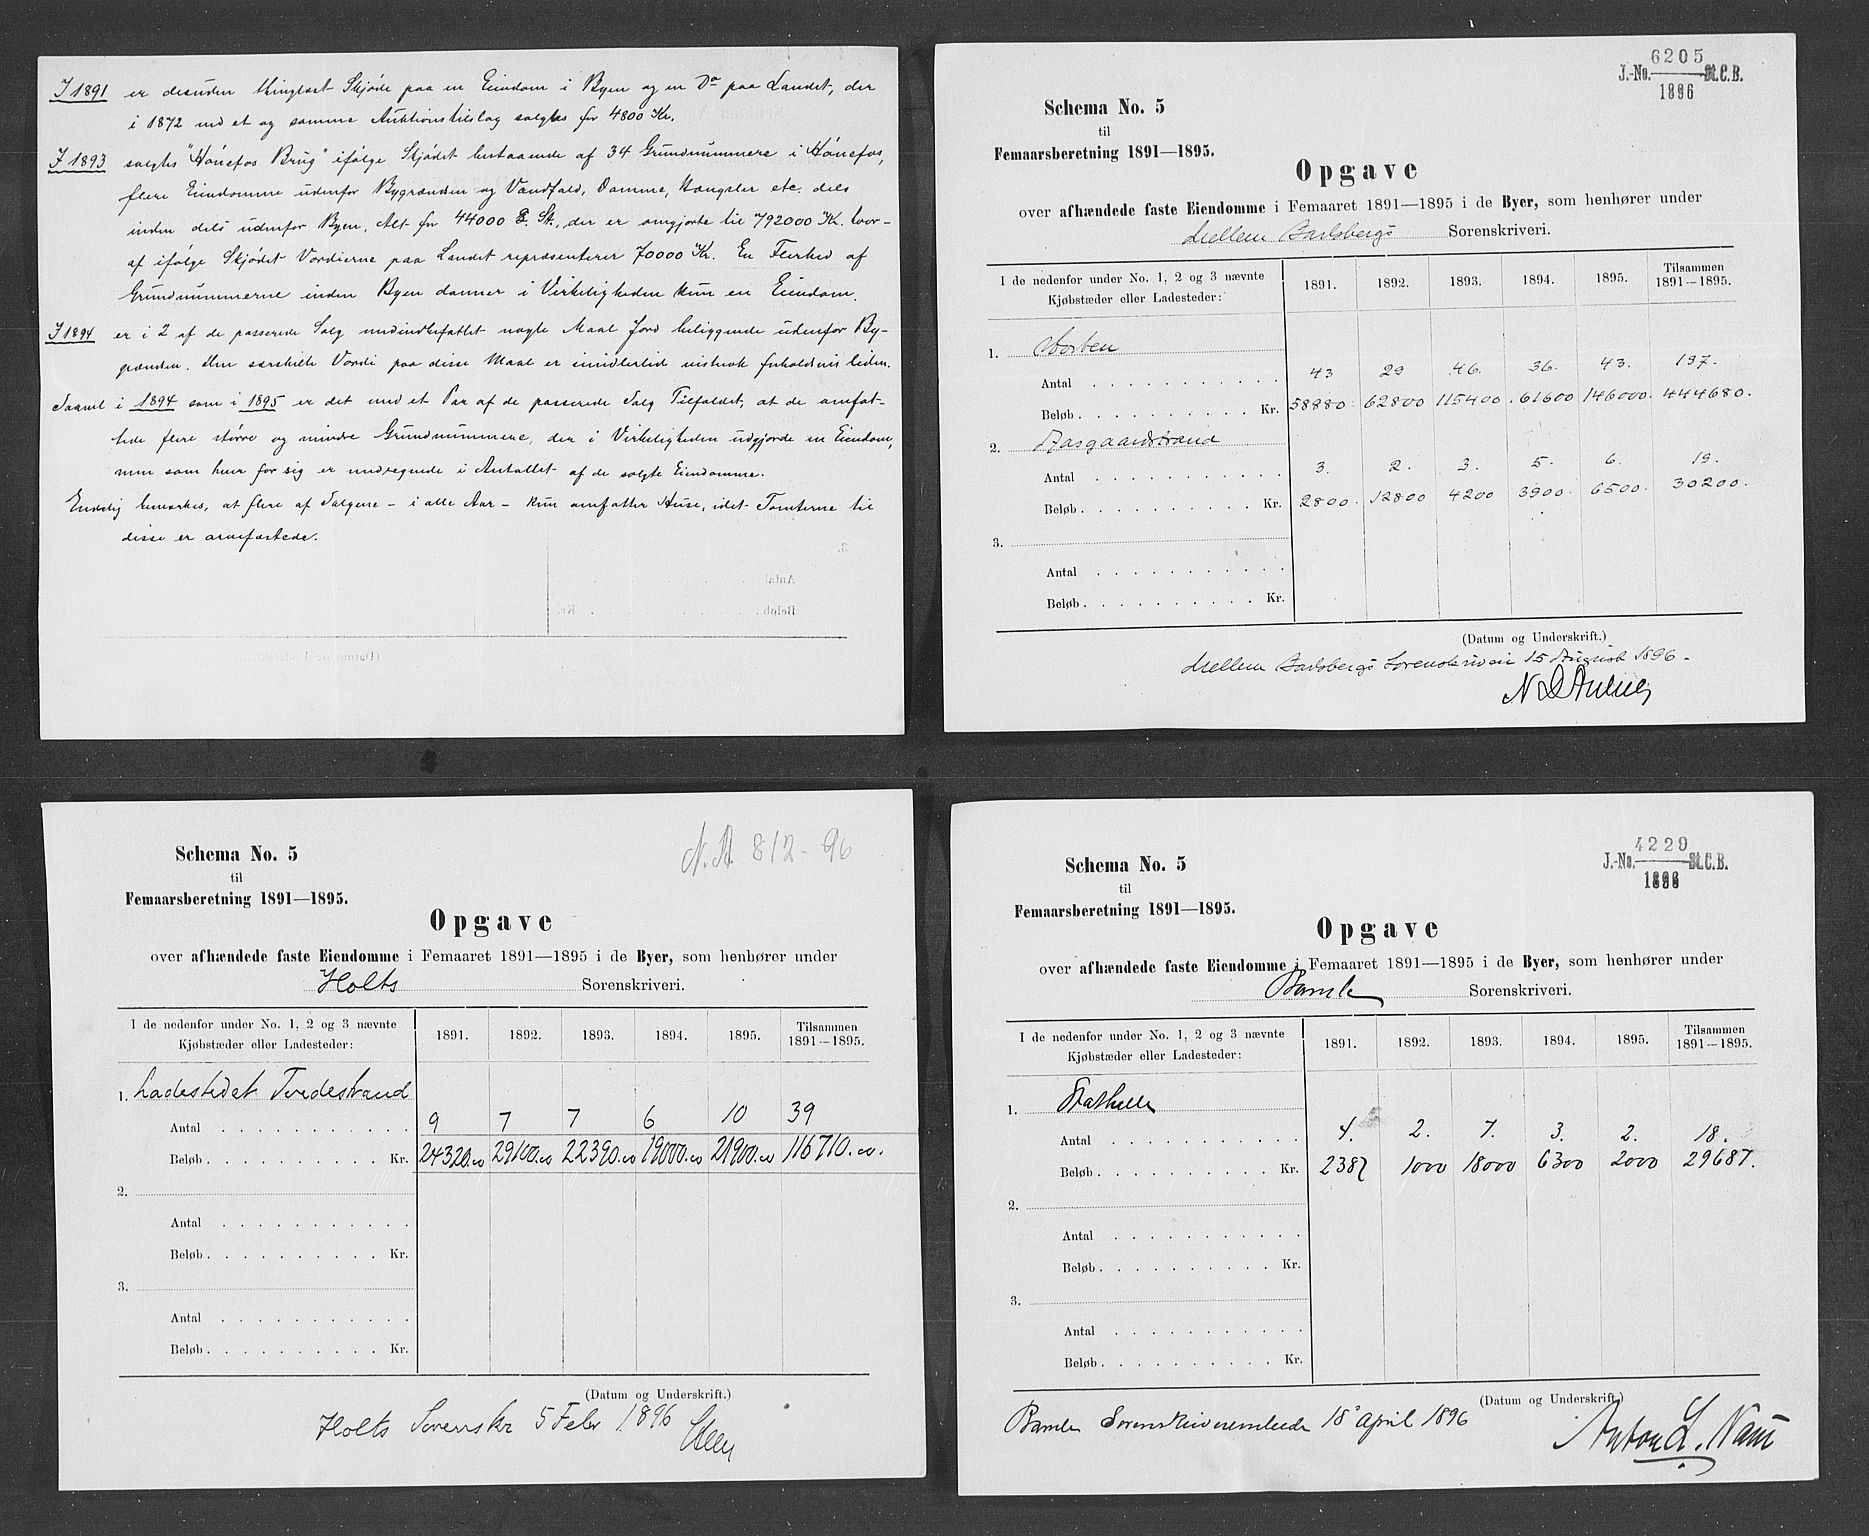 I 1891 er desuden thinglæst Skjøde paa en Eiendom i Byen og en Do paa Landet, der
i 1872 ved et og samme Auktionstilslag solgtes for 4800 Kr.
I 1893 solgtes "Hønefos Brug" ifølge Skjødet bestaaende af 34 Grundnummere i Hønefos,
flere Eiendomme udenfor Bygrændsen og Vandfald, Damme, Hængsler etc. dels
inden dels udenfor Byen, Alt for 44000 £ St., der er omgjorte til 792000 Kr. hvor-
af ifølge Skjødet Værdierne paa Landet repræsenterer 70000 Kr. En Flerhed af
Grundnummerne inden Byen danner i Virkeligheden kun en Eiendom.
I 1894 er i 2 af de passerede Salg medindbefattet nogle Maal Jord beliggende udenfor By-
grændsen. Den særskilte Værdi paa disse Maal er imidlertid vistnok forholdsvis liden.
Saavel i 1894 som i 1895 er det ved et Par af de passerede Salg Tilfældet, at de omfat-
tede flere større og mindre Grundnummere, der i Virkeligheden udgjorde en Eiendom,
men som hver for sig er medregnede i Antallet af de solgte Eiendomme.
Endelig bemærkes, at flere af Salgene – i alle Aar – kun omfatter Huse, idet Tomterne til
disse er arvefæstede.
6205
J.-No. St.C.B.
1896
Schema No. 5
til
Femaarsberetning 1891—1895.
Opgave
over afhændede faste Eiendomme i Femaaret 1891—1895 i de Byer, som henhører under
Mellem Jarlsbergs Sorenskriveri.
I de nedenfor under No. 1, 2 og 3 nævnte Kjøbstæder eller Ladesteder: 1891. 1892. 1893. 1894. 1895. Tilsammen 1891—1895.
1. Horten
Antal 43 29 46. 36. 43. 197.
Beløb Kr. 58980. 62800 115400. 61600 146000. 444680.
2. Aasgaardstrand
Antal 3. 2. 3. 5. 6. 19.
Beløb Kr. 2800. 12800 4200 3900. 6500. 30200.
3.
Antal
Beløb Kr.
(Datum og Underskrift.)
Mellem Jarlsbergs Sorenskriveri 15 August 1896.
Schema No. 5
N.A. 812-96
til
Femaarsberetning 1891—1895.
Opgave
over afhændede faste Eiendomme i Femaaret 1891—1895 i de Byer, som henhører under
Holts Sorenskriveri.
I de nedenfor under No. 1, 2 og 3 nævnte Kjøbstæder eller Ladesteder: 1891. 1892. 1893. 1894. 1895. Tilsammen 1891—1895.
1. Ladestedet Tvedestrand
Antal 9 7 7 6 10 39
Beløb Kr. 24320.00 29100.00 22390.00 19000.00 21900.00 116710.00.
2.
Antal
Beløb Kr.
3.
Antal
Beløb Kr.
(Datum og Underskrift.)
Holts Sorenskr 5 Febr 1896
4229
J.-No. St.C.B.
1896
Schema No. 5
til
Femaarsberetning 1891—1895.
Opgave
over afhændede faste Eiendomme i Femaaret 1891—1895 i de Byer, som henhører under
Bamle Sorenskriveri.
I de nedenfor under No. 1, 2 og 3 nævnte Kjøbstæder eller Ladesteder: 1891. 1892. 1893. 1894. 1895. Tilsammen 1891—1895.
1. Stathelle
Antal 4. 2. 7. 3. 2. 18.
Beløb Kr. 2387 1000 18000 6300 2000 29687.
2.
Antal
Beløb Kr.
3.
Antal
Beløb Kr.
(Datum og Underskrift.)
Bamle Sorenskriverembede 18 april 1896
Anton L.